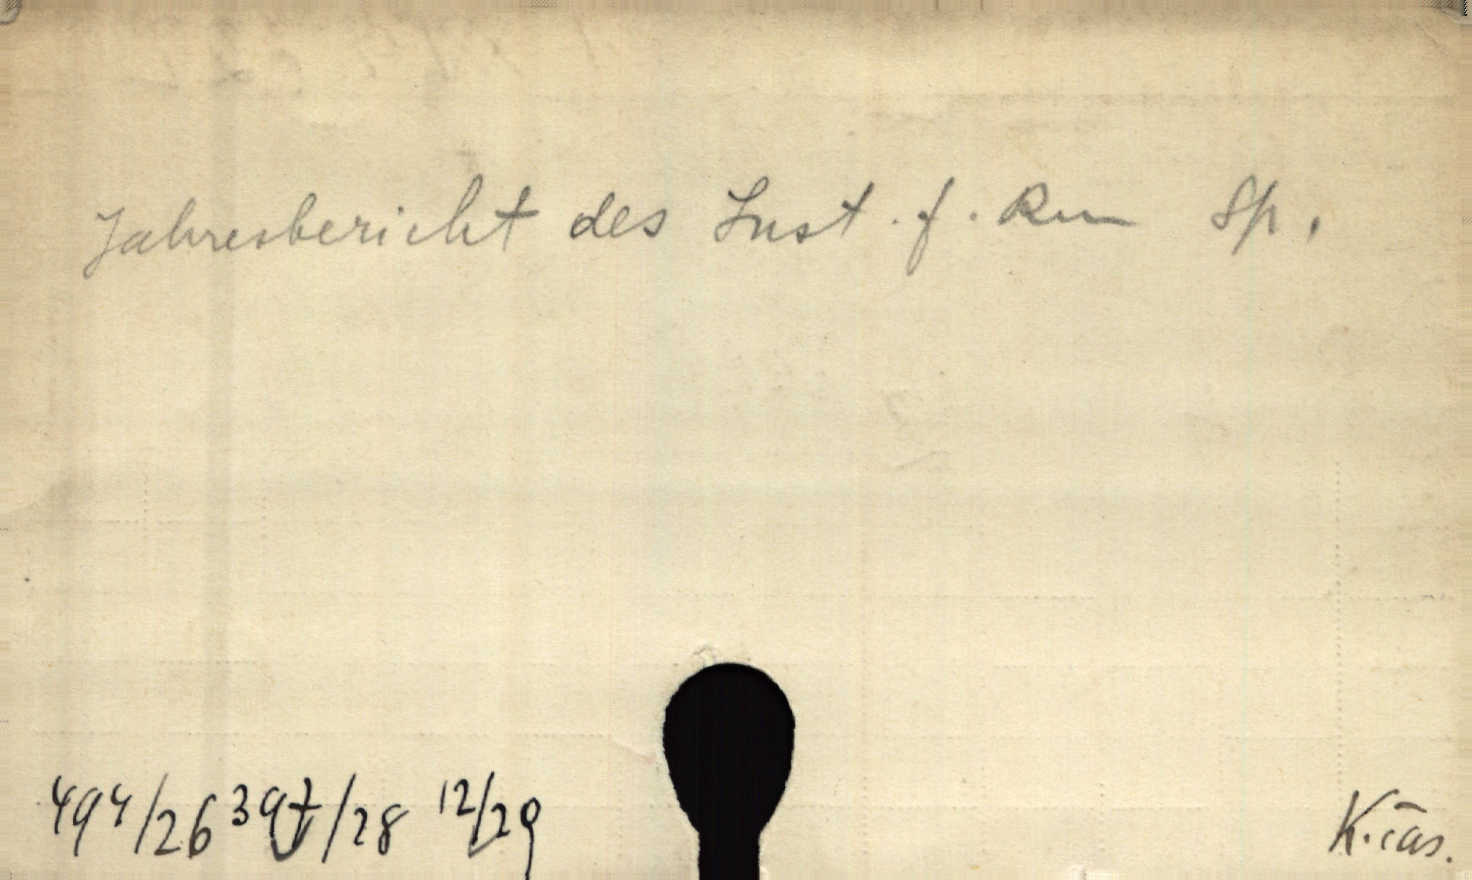 Jahresbericht des Inst. f. Rum Sp.
494/26 397/28 12/29
K. čas.